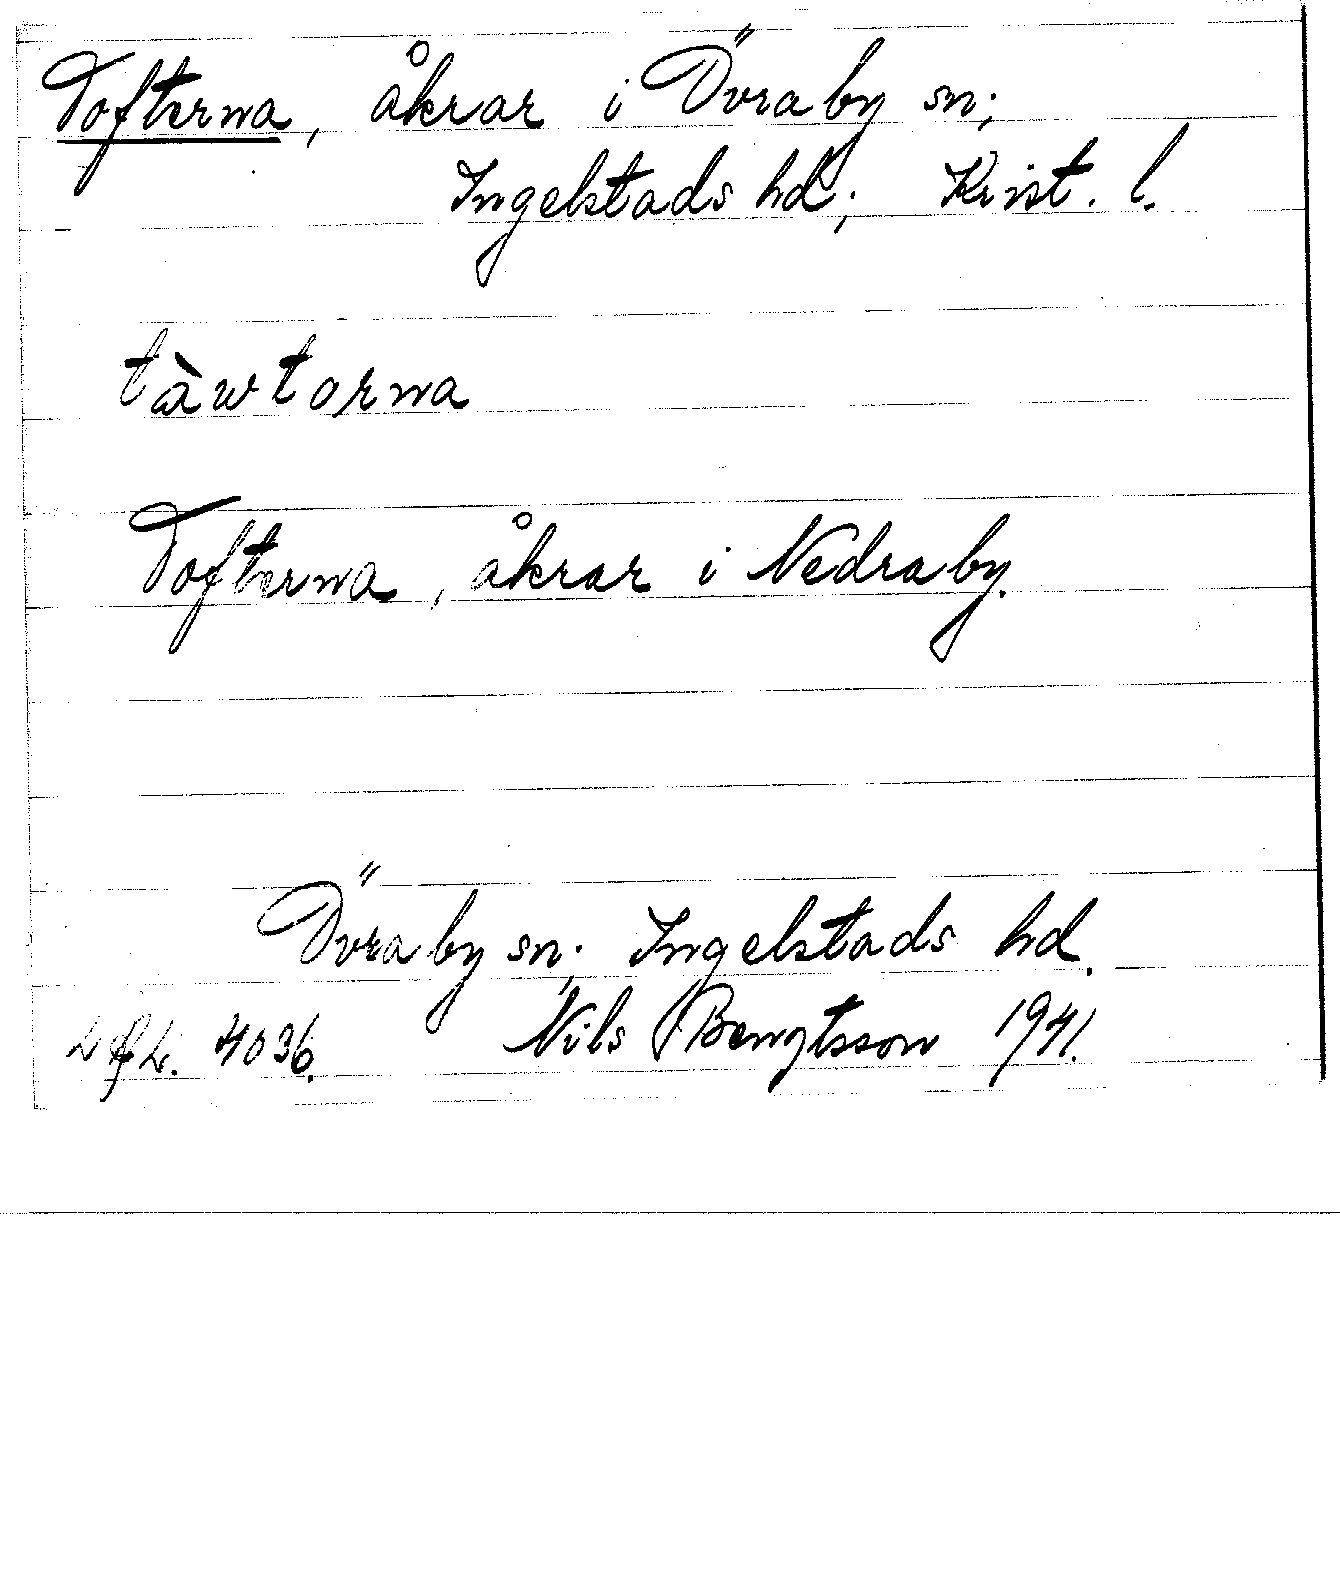 Tofterna, åkrar i Övraby sn;
Ingelstads hd; Krist. l.
tàwtorna
Tofterna, åkrar i Nedraby.
Övraby sn; Ingelstads hd.
4036. Nils Bengtsson 1941.